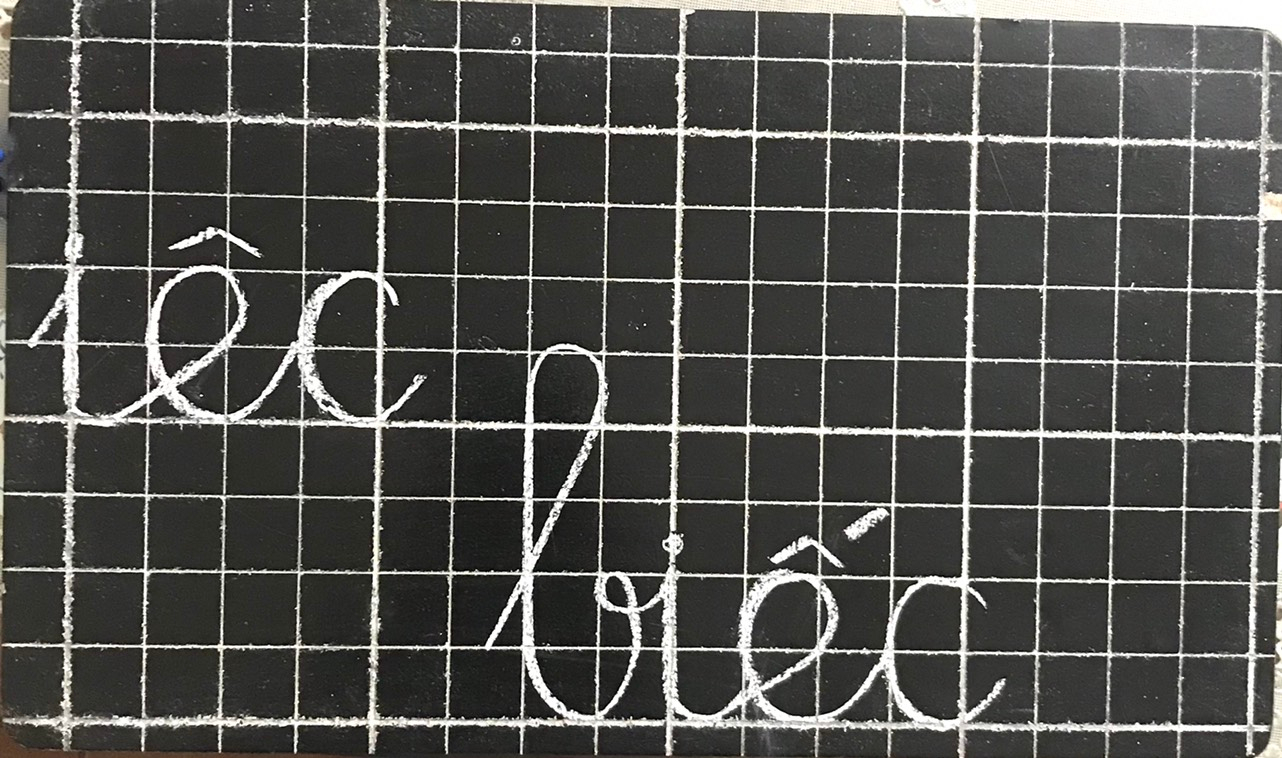 iêc
biếc